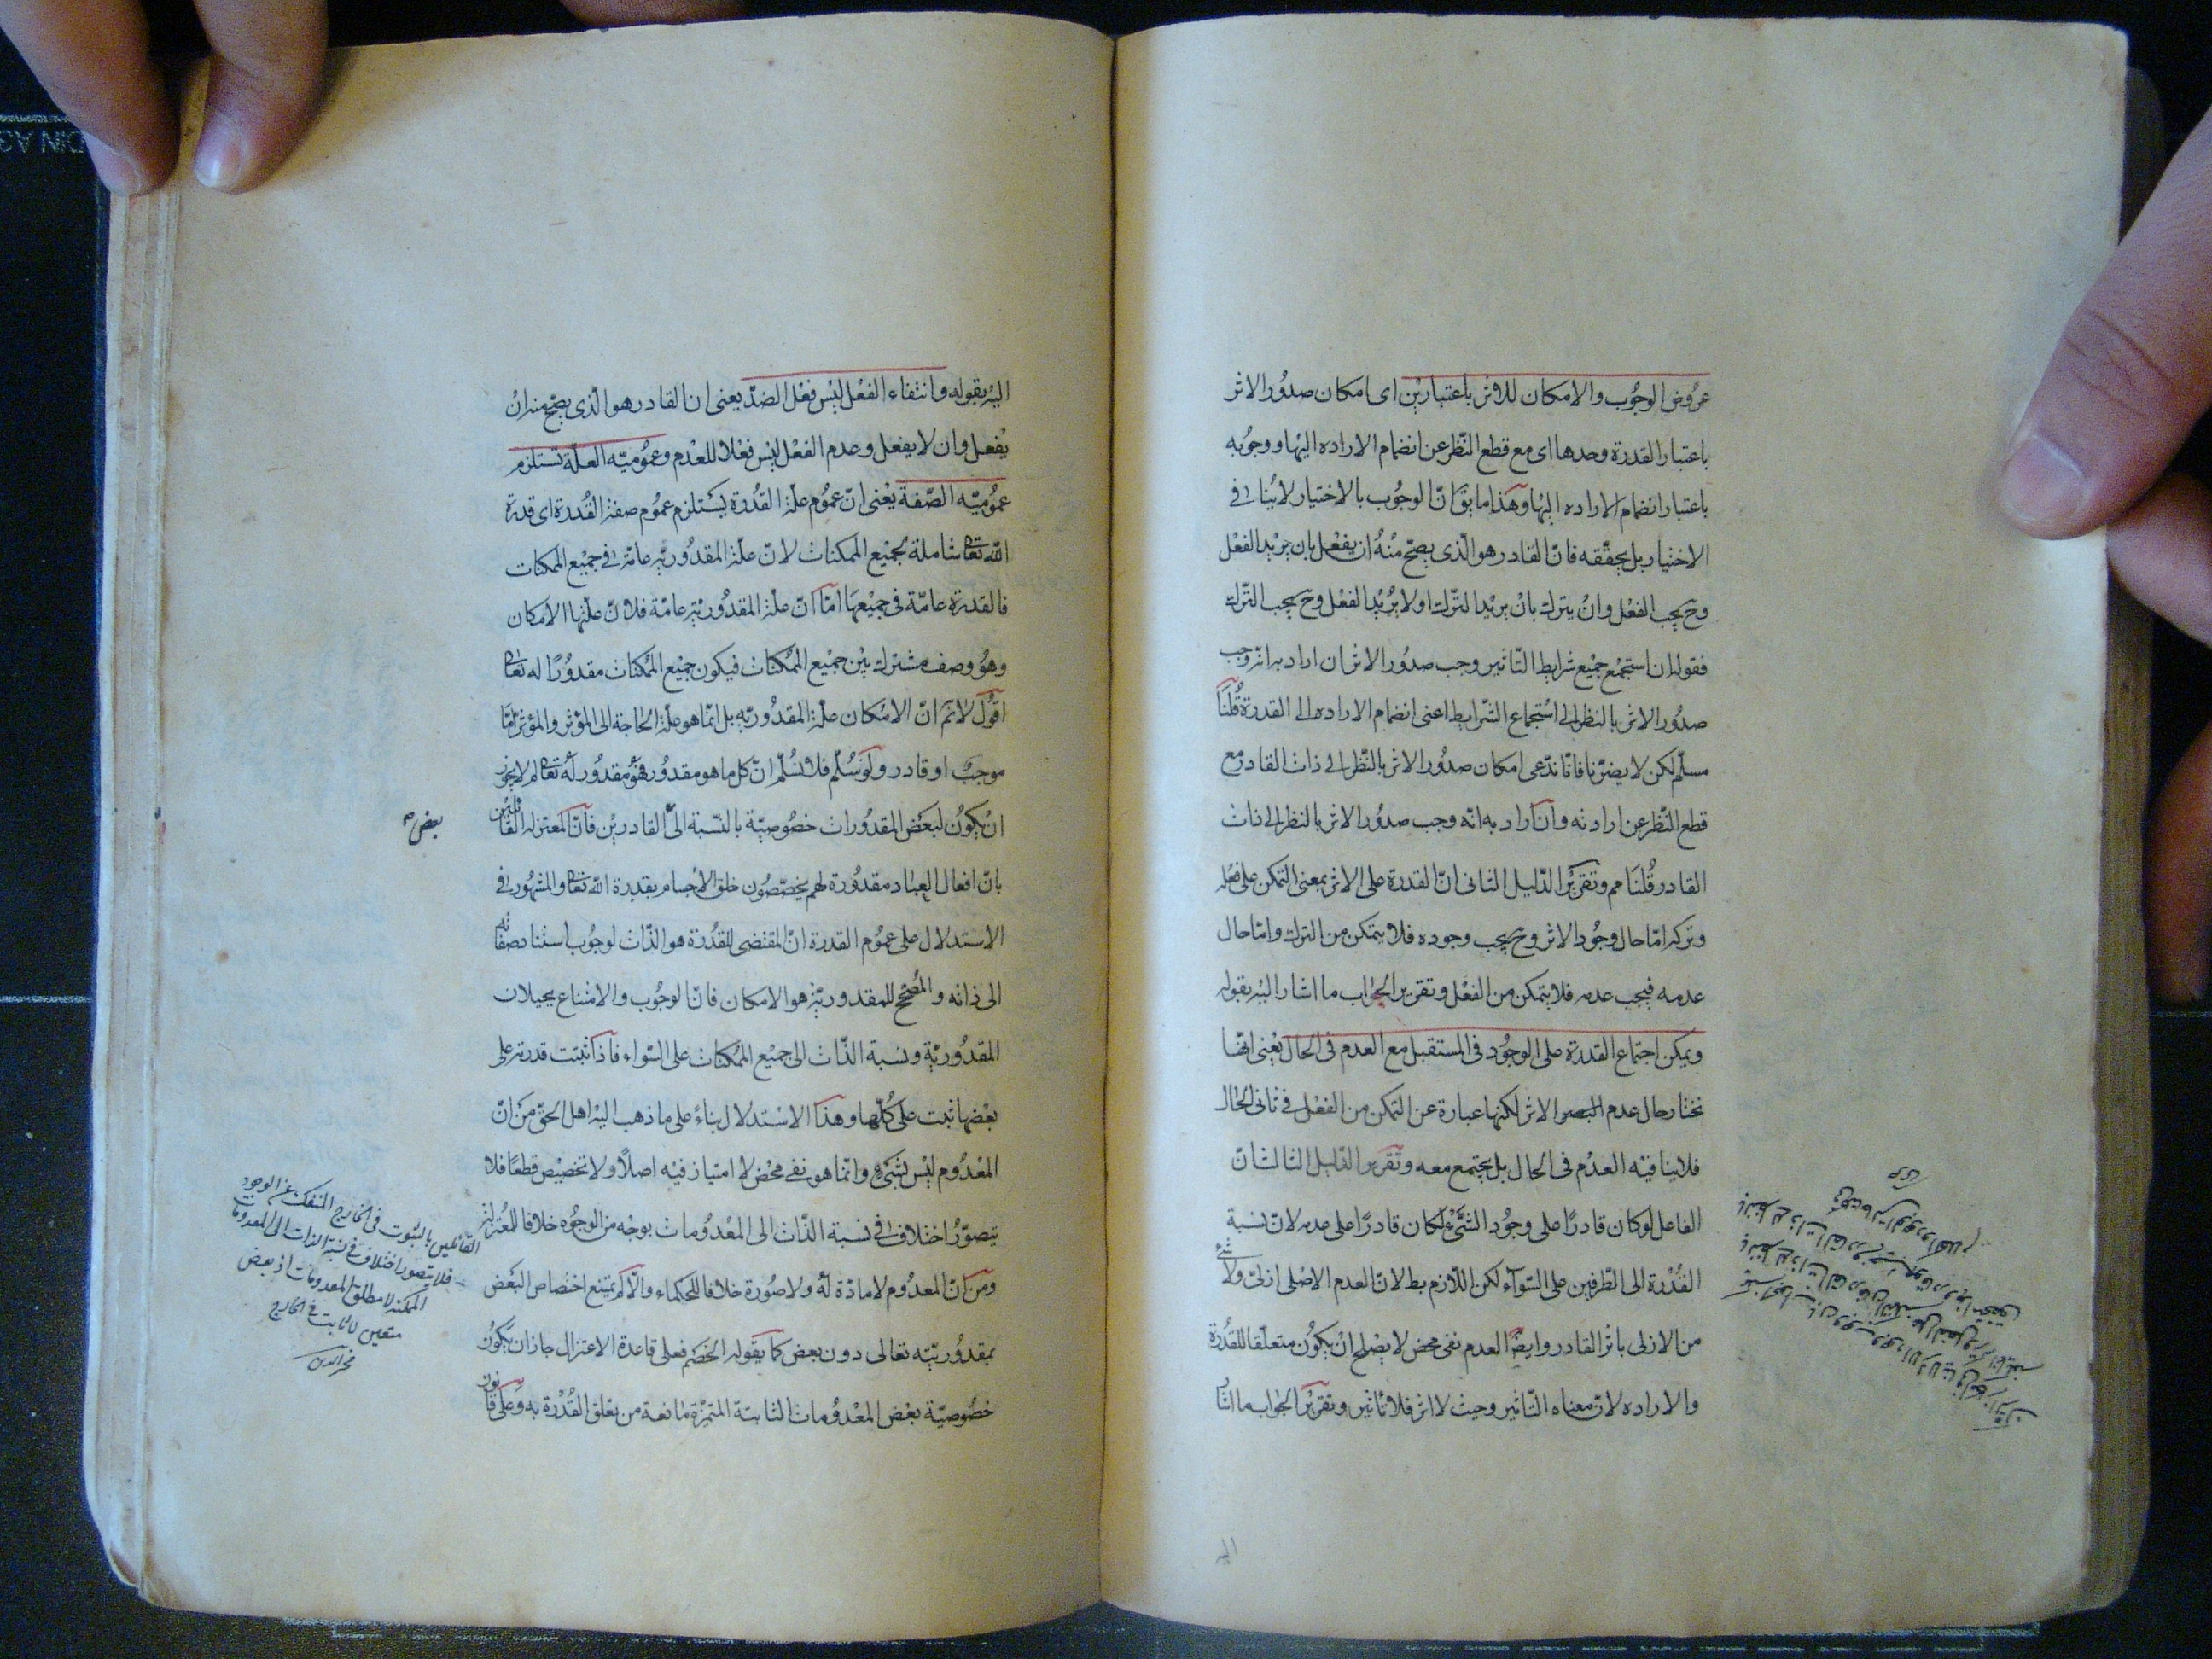 عروض الوجوب والامكان للاثر باعتبارين اى امكان صدور الاثر
باعتبار القدرة وحدها اى مع قطع النظر عن انضمام الاراده اليها ووجوبه
باعتبار انضمام الاراده اليها وهذا ما يق ان الوجوب بالاختيار لا ينافى
الاختيار بل يحققه فان القادر هو الذى يصح منه ان يفعل بان يريد الفعل
وح يجب الفعل وان يترك بان يريد الترك او لا يريد الفعل وح يجب الترك
فقوله ان استجمع جميع شرايط التاثير وجب صدور الاثر ان اراد به انه وجب
صدور الاثر بالنظر الى استجماع الشرايط اعنى انضمام الاراده الى القدرة قلنا
مسلم لكن لا يضرنا فانا ندعى امكان صدور الاثر بالنظر الى ذات القادر مع
قطع النظر عن ارادته وان اراد به انه وجب صدور الاثر بالنظر الى ذات
القادر قلنا مم وتقرير الدليل الثانى ان القدرة على الاثر بمعنى التمكن على فعله
وتركه اما حال وجود الاثر وح يجب وجوده فلا يتمكن من الترك واما حال
عدمه فيجب عدمه فلا يتمكن من الفعل وتقرير الجواب ما اشار اليه بقوله
ويمكن اجتماع القدرة على الوجود فى المستقبل مع العدم فى الحال يعنى انها
نختار حال عدم الاثر لكنها عبارة عن التمكن من الفعل فى ثانى الحال
فلا ينافيه العدم فى الحال بل يجتمع معه وتقرير الدليل الثالث ان
الفاعل لو كان قادرا على وجود الشئ لكان قادرا على عدمه لان نسبة
القدرة الى الطرفين على السوآء لكن اللازم بط لان العدم الاصلى ازلى ولا شئ
من الازلى باثر القادر وايضا العدم نفى محض لا يصلح ان يكون متعلقا للقدرة
والاراده لان معناه التاثير وحيث لا اثر فلا تاثير وتقرير الجواب ما اشا
اليه
اليه بقوله وانتفاء الفعل ليس فعل الضد يعنى ان القادر هو الذى يصح منه ان
يفعل وان لا يفعل وعدم الفعل ليس فعلا للعدم وعمومية العلة تستلزم
عمومية الصفة يعنى ان عموم علة القدرة يستلزم عموم صفة القدرة اى قدرة
الله تعالى شاملة لجميع الممكنات لان علة المقدورية عامة فى جميع الممكنات
فالقدرة عامة فى جميعها اما ان علة المقدورية عامة فلان علتها الامكان
وهو وصف مشترك بين جميع الممكنات فيكون جميع الممكنات مقدورا له تعالى
اقول لا نم ان الامكان علة المقدورية بل انما هو علة الحاجة الى المؤثر والمؤثر اما
موجب او قادر ولو سلم فلا نسلم ان كل ما هو مقدور فهو مقدور له تعالى لم لا يجوز
ان يكون لبعض المقدورات خصوصية بالنسبة الى القادرين فان المعتزلة القائلين
بعض صح
بان افعال العباد مقدورة لهم يخصصون خلق الاجسام بقدرة الله تعالى والمشهور فى
الاستدلال على عموم القدرة ان المقتضى للقدرة هو الذات لوجوب استناد صفاته
الى ذاته والمصحح للمقدورية هو الامكان فان الوجوب والامتناع يحيلان
المقدورية ونسبة الذات الى جميع الممكنات على السواء فاذا ثبتت قدرته على
بعضها ثبت على كلها وهذا الاستدلال بناء على ما ذهب اليه اهل الحق من ان
المعدوم ليس بشئ وانما هو نفى محض لا امتياز فيه اصلا ولا تخصيص قطعا فلا
يتصور اختلاف فى نسبة الذات الى المعدومات بوجه من الوجوه خلافا للمعتزلة
ومن ان المعدوم لا مادة له ولا صورة خلافا للحكماء والا لم يمتنع اختصاص البعض
بمقدوريته تعالى دون بعض كما يقوله الخصم فعلى قاعدة الاعتزال جاز ان يكون
خصوصية بعض المعدومات الثابتة المتميزة مانعة من تعلق القدرة به وعلى قانون
القائلين بالثبوت فى الخارج المنفك عن الوجود
فلا يتصور اختلاف فى نسبة الذات الى المعدومات
الممكنة لا مطلق المعدومات اذ بعض
متعين لا ثابت فى الخارج
فخر الدين